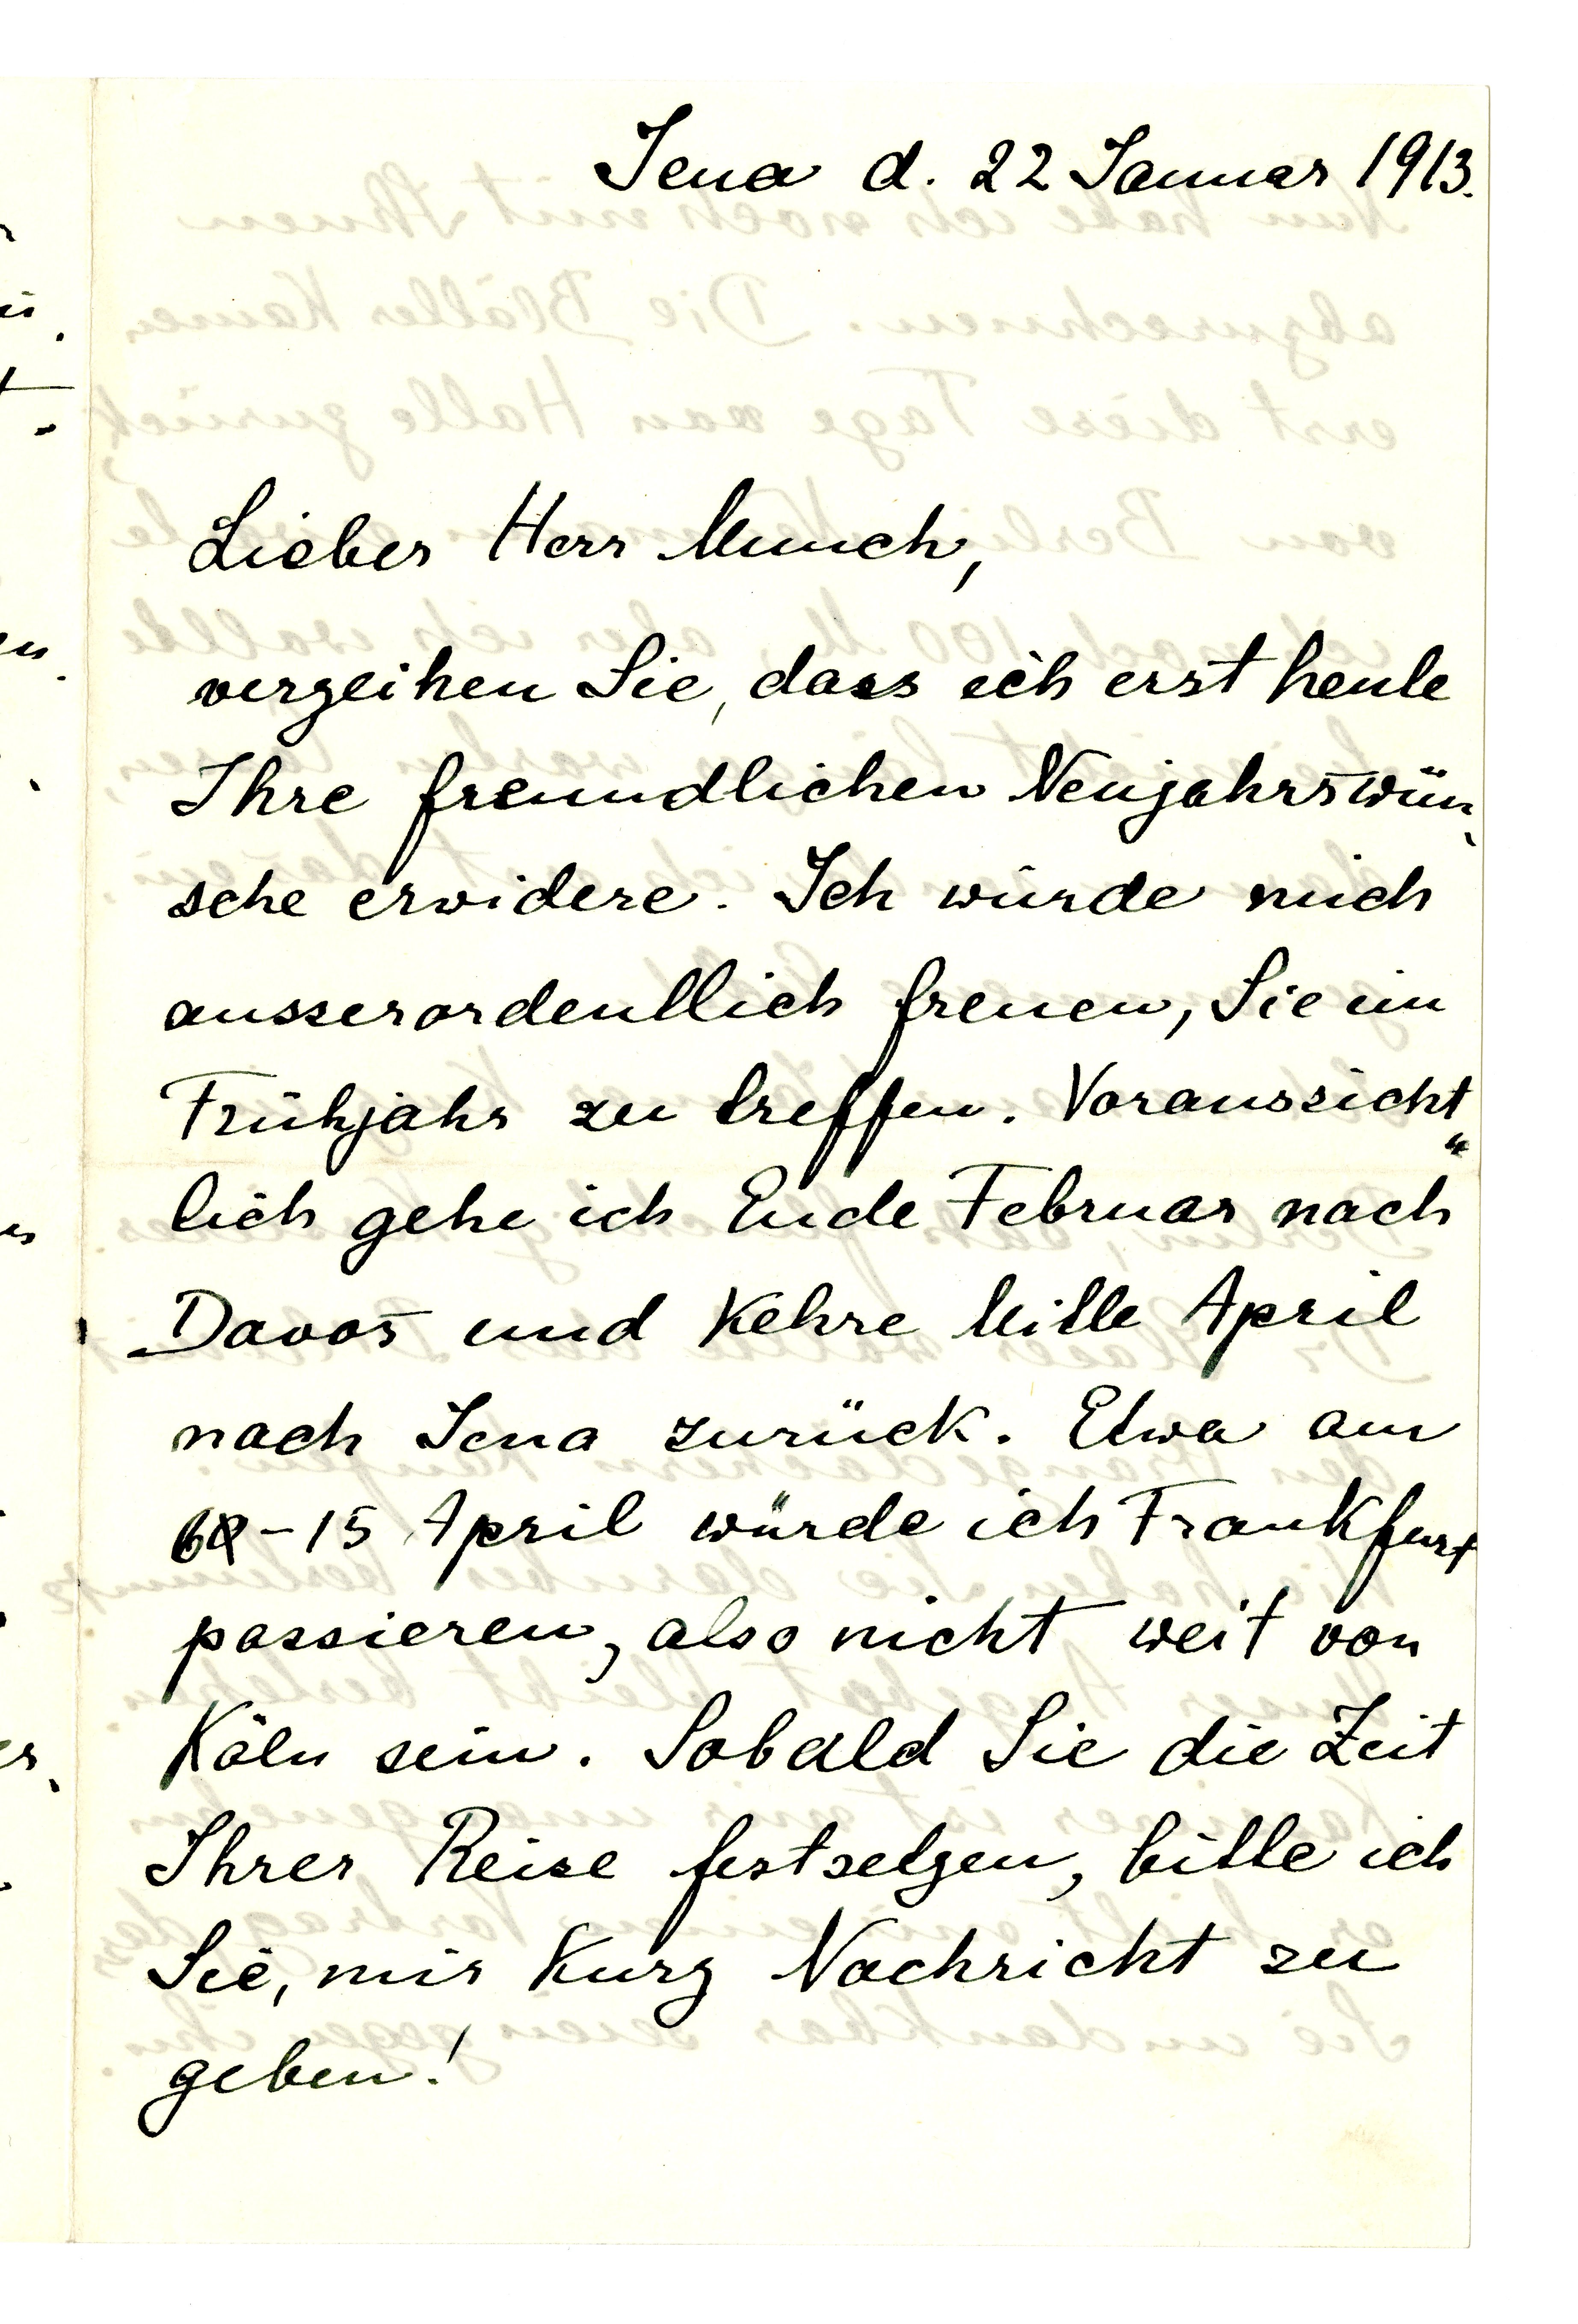 Jena d. 22 Januar 1913.
Lieber Herr Munch,
verzeihen Sie, dass ich erst heute
Ihre freundlichen Neujahrswün-
sche erwidere. Ich würde mich
ausserordentlich freuen, Sie im
Frühjahr zu treffen. Voraussicht-
lich gehe ich Ende Februar nach
Davos und kehre Mitte April
nach Jena zurück. Etwa am
-15 April würde ich Frankfurt
passieren, also nicht weit von
Köln sein. Sobald Sie die Zeit
Ihrer Reise festsetzen, bitte ich
Sie, mir kurz Nachricht zu
geben!